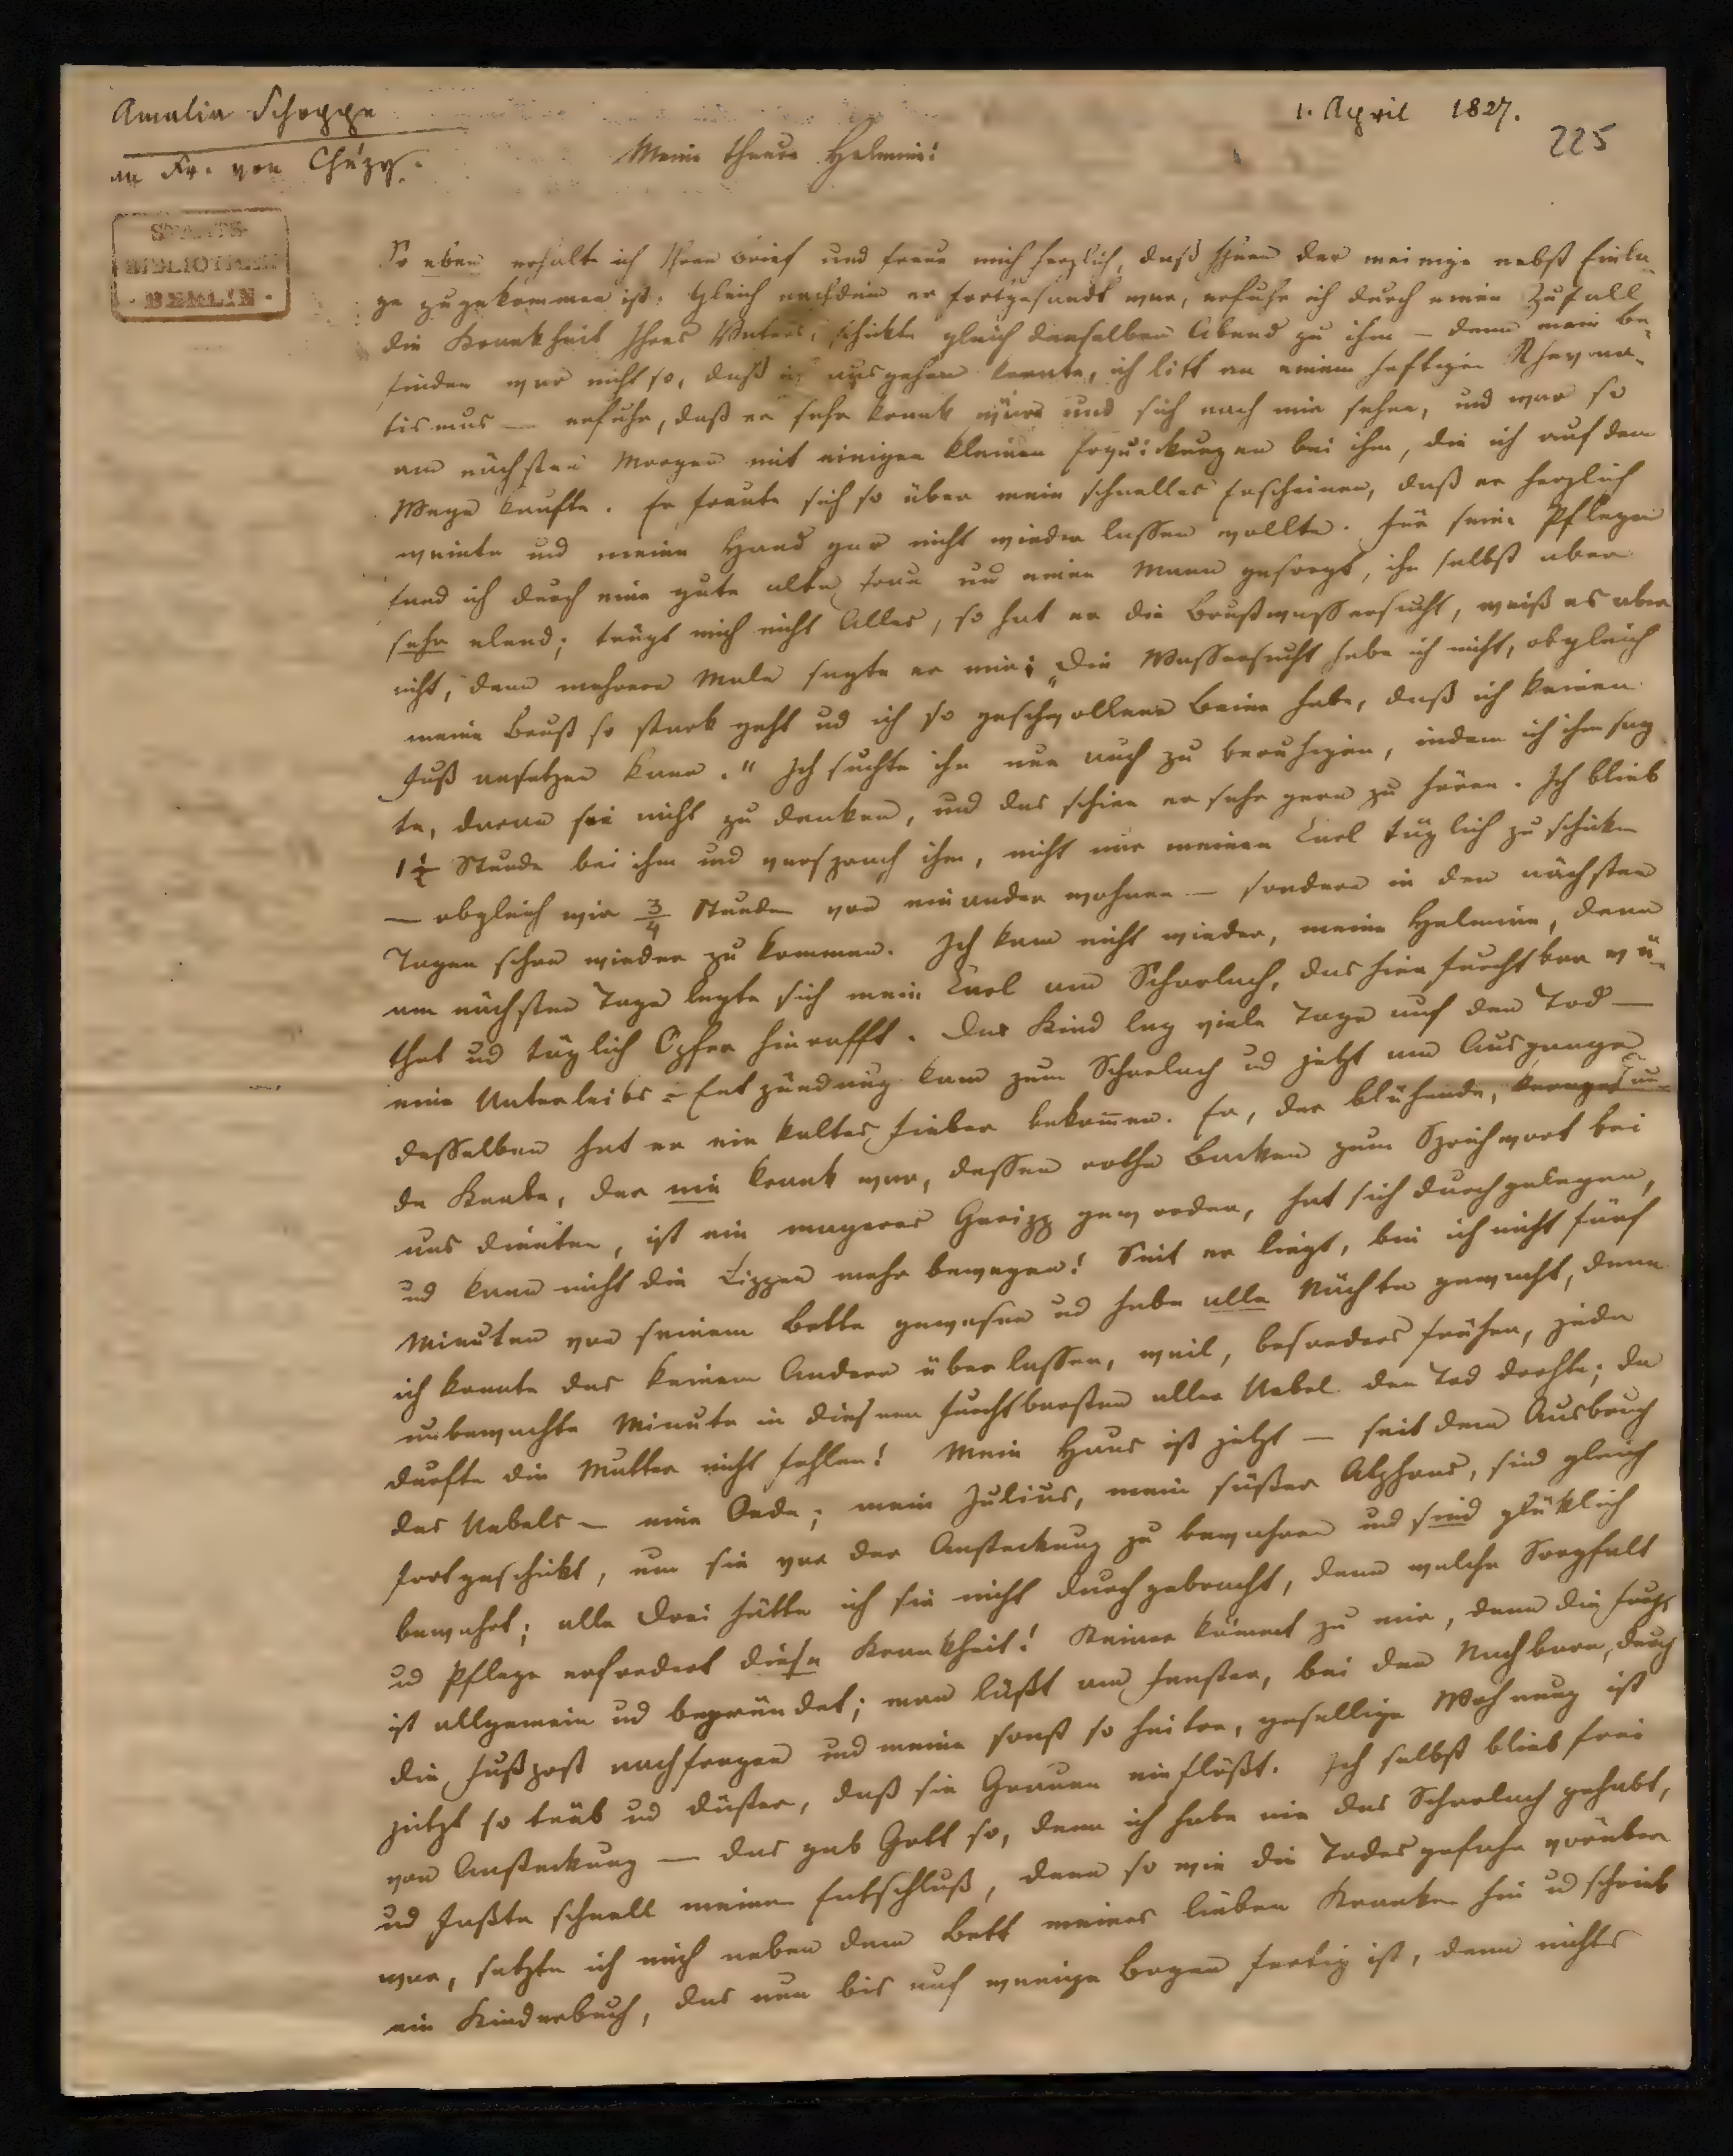 Amalia Schoppe
an Fr. von Chézy.
1. April 1827.
225
STAATS-
BIBLIOTHEK
· BERLIN ·
Meine theure Helmine!
So eben erhalte ich Ihren Brief und freue mich herzlich, daß Ihnen der meinige nebst Einla-
ge zugekommen ist. Gleich nachdem er fortgesandt war, erfuhr ich durch einen Zufall
die Krankheit Ihres Vaters, schickte gleich denselben Abend zu ihm — denn mein Be-
finden war nicht so, daß ich ausgehen konnte, ich litt an einem heftigen Rheuma-
tismus — erfuhr, daß er sehr krank wäre und sich nach mir sehne, und war so
am nächsten Morgen mit einigen kleinen Erquickungen bei ihm, die ich auf dem
Wege kaufte. Er freute sich so über mein schnelles Erscheinen, daß er herzlich
weinte und meine Hand gar nicht wieder lassen wollte. Für seine Pflege
fand ich durch eine gute alte Frau und einen Mann gesorgt, ihn selbst aber
sehr elend; trügt mich nicht Alles, so hat er die Brustwassersucht, weiß es aber
nicht, denn mehrere Male sagte er mir: „Die Wassersucht habe ich nicht, obgleich
meine Brust so stark geht ud ich so geschwollene Beine habe, daß ich keinen
Fuß ansetzen kann." Ich suchte ihn nun auch zu beruhigen, indem ich ihm sag
te, daran sei nicht zu denken, und das schien er sehr gern zu hören. Ich blieb
1½ Stunde bei ihm und versprach ihm, nicht nur meinen Carl täglich zu schicken
— obgleich wir ¾ Stunden von einander wohnen — sondern in den nächsten
Tagen schon wieder zu kommen. Ich kam nicht wieder, meine Helmine, denn
am nächsten Tage legte sich mein Carl am Scharlach, das hier furchtbar wü-
thet ud täglich Opfer hinrafft. Das Kind lag viele Tage auf den Tod —
eine Unterleibs-Entzündung kam zum Scharlach ud jetzt am Ausgange
desselben hat er ein kaltes Fieber bekom̄en. Er, der blühende,
de Knabe, der nie krank war, dessen rothe Backen zum Sprichwort bei
uns dienten, ist ein mageres Geripp geworden, hat sich durchgelegen,
ud kann nicht die Lippen mehr bewegen! Seit er liegt, bin ich nicht fünf
Minuten von seinem Bette gewesen ud habe alle Nächte gewacht, denn
ich konnte das keinem Andern überlassen, weil, besonders früher, jede
unbewachte Minute in diesem furchtbarsten aller Uebel den Tod drohte; da
durfte die Mutter nicht fehlen! Mein Haus ist jetzt — seit dem Ausbruch
des Uebels — eine Oede; mein Julius, mein süßer Alphons, sind gleich
fortgeschickt, um sie vor der Ansteckung zu bewahren und sind glüklich
bewahrt; alle Drei hätte ich sie nicht durchgebracht, denn welche Sorgfalt
ud Pflege erfordert diese Krankheit! Keiner köm̄t zu mir, denn die Furcht
ist allgemein ud begründet; man läßt am Fenster, bei den Nachbarn, durch
die Fußpost nachfragen und meine sonst so heitre, gesellige Wohnung ist
jetzt so trüb ud düster, daß sie Grauen einflößt. Ich selbst blieb frei
von Ansteckung — das gab Gott so, denn ich habe nie das Scharlach gehabt,
ud faßte schnell meinen Entschluß, denn so wie die Todesgefahr vorüber
war, setzte ich mich neben dem Bett meines lieben Kranken hin ud schrieb
ein Kinderbuch, das nun bis auf wenige Bogen fertig ist, denn nichts